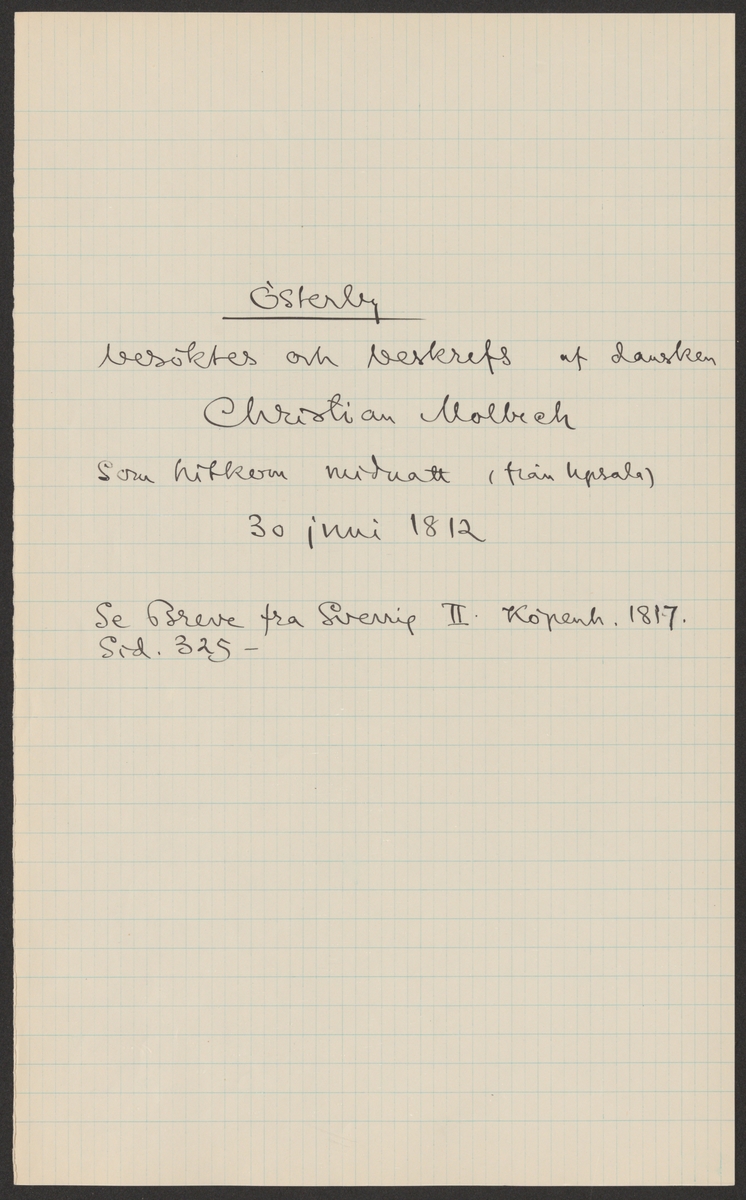 Österby
besöktes och beskrefs af dansken
Christian Molbech
Som hitkom midnatt (från Upsala)
30 juni 1812
Se Breve fra Sverrig II. Köpenh. 1817.
Sid. 325 –